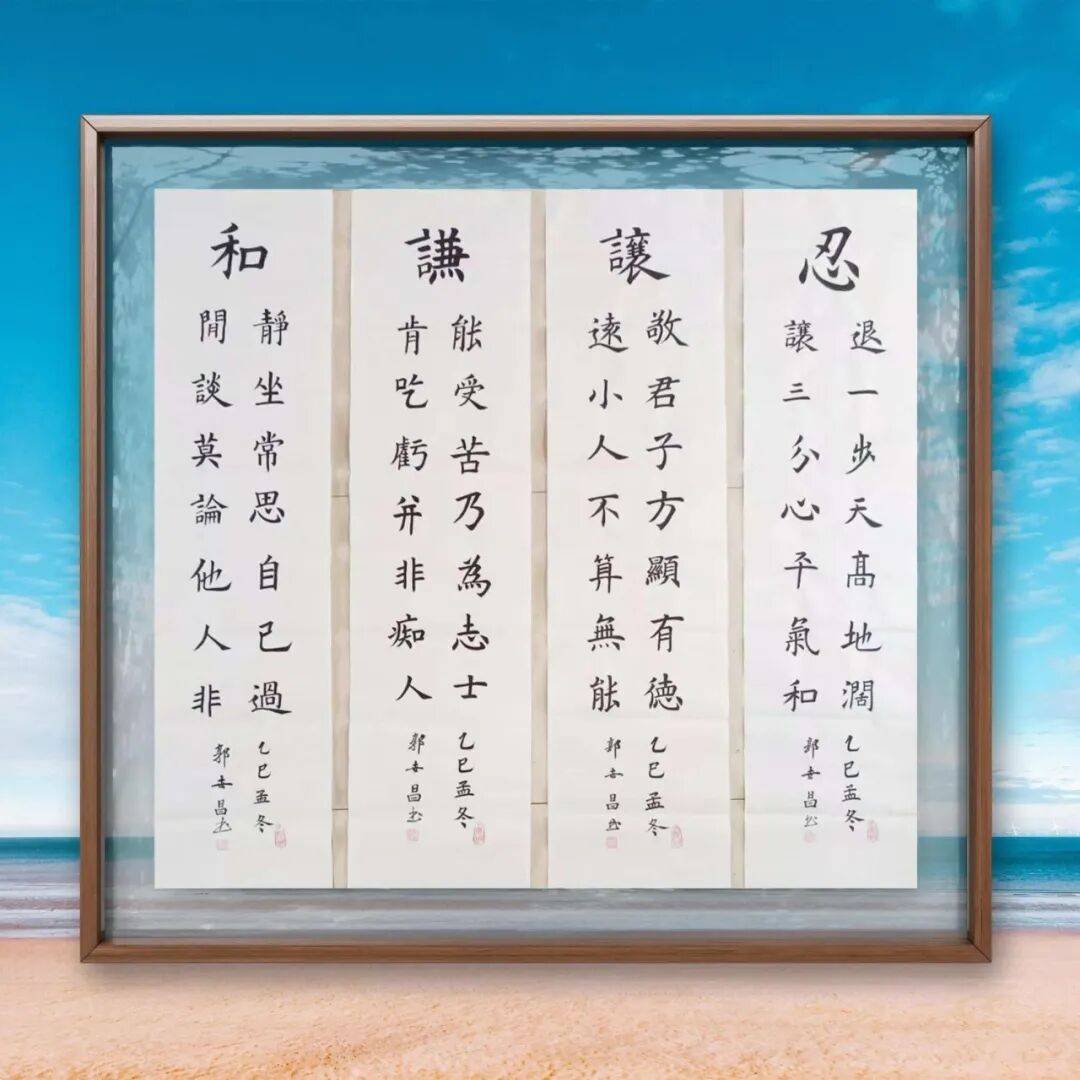 忍
退一步天高地濶
讓三分心平氣和
乙巳孟冬
郭安昌书
讓
敬君子方顯有德
遠小人不算無能
乙巳孟冬
郭安昌书
謙
能受苦乃為志士
肯吃虧并非痴人
乙巳孟冬
郭安昌书
和
靜坐常思自己過
閒談莫論他人非
乙巳孟冬
郭安昌书